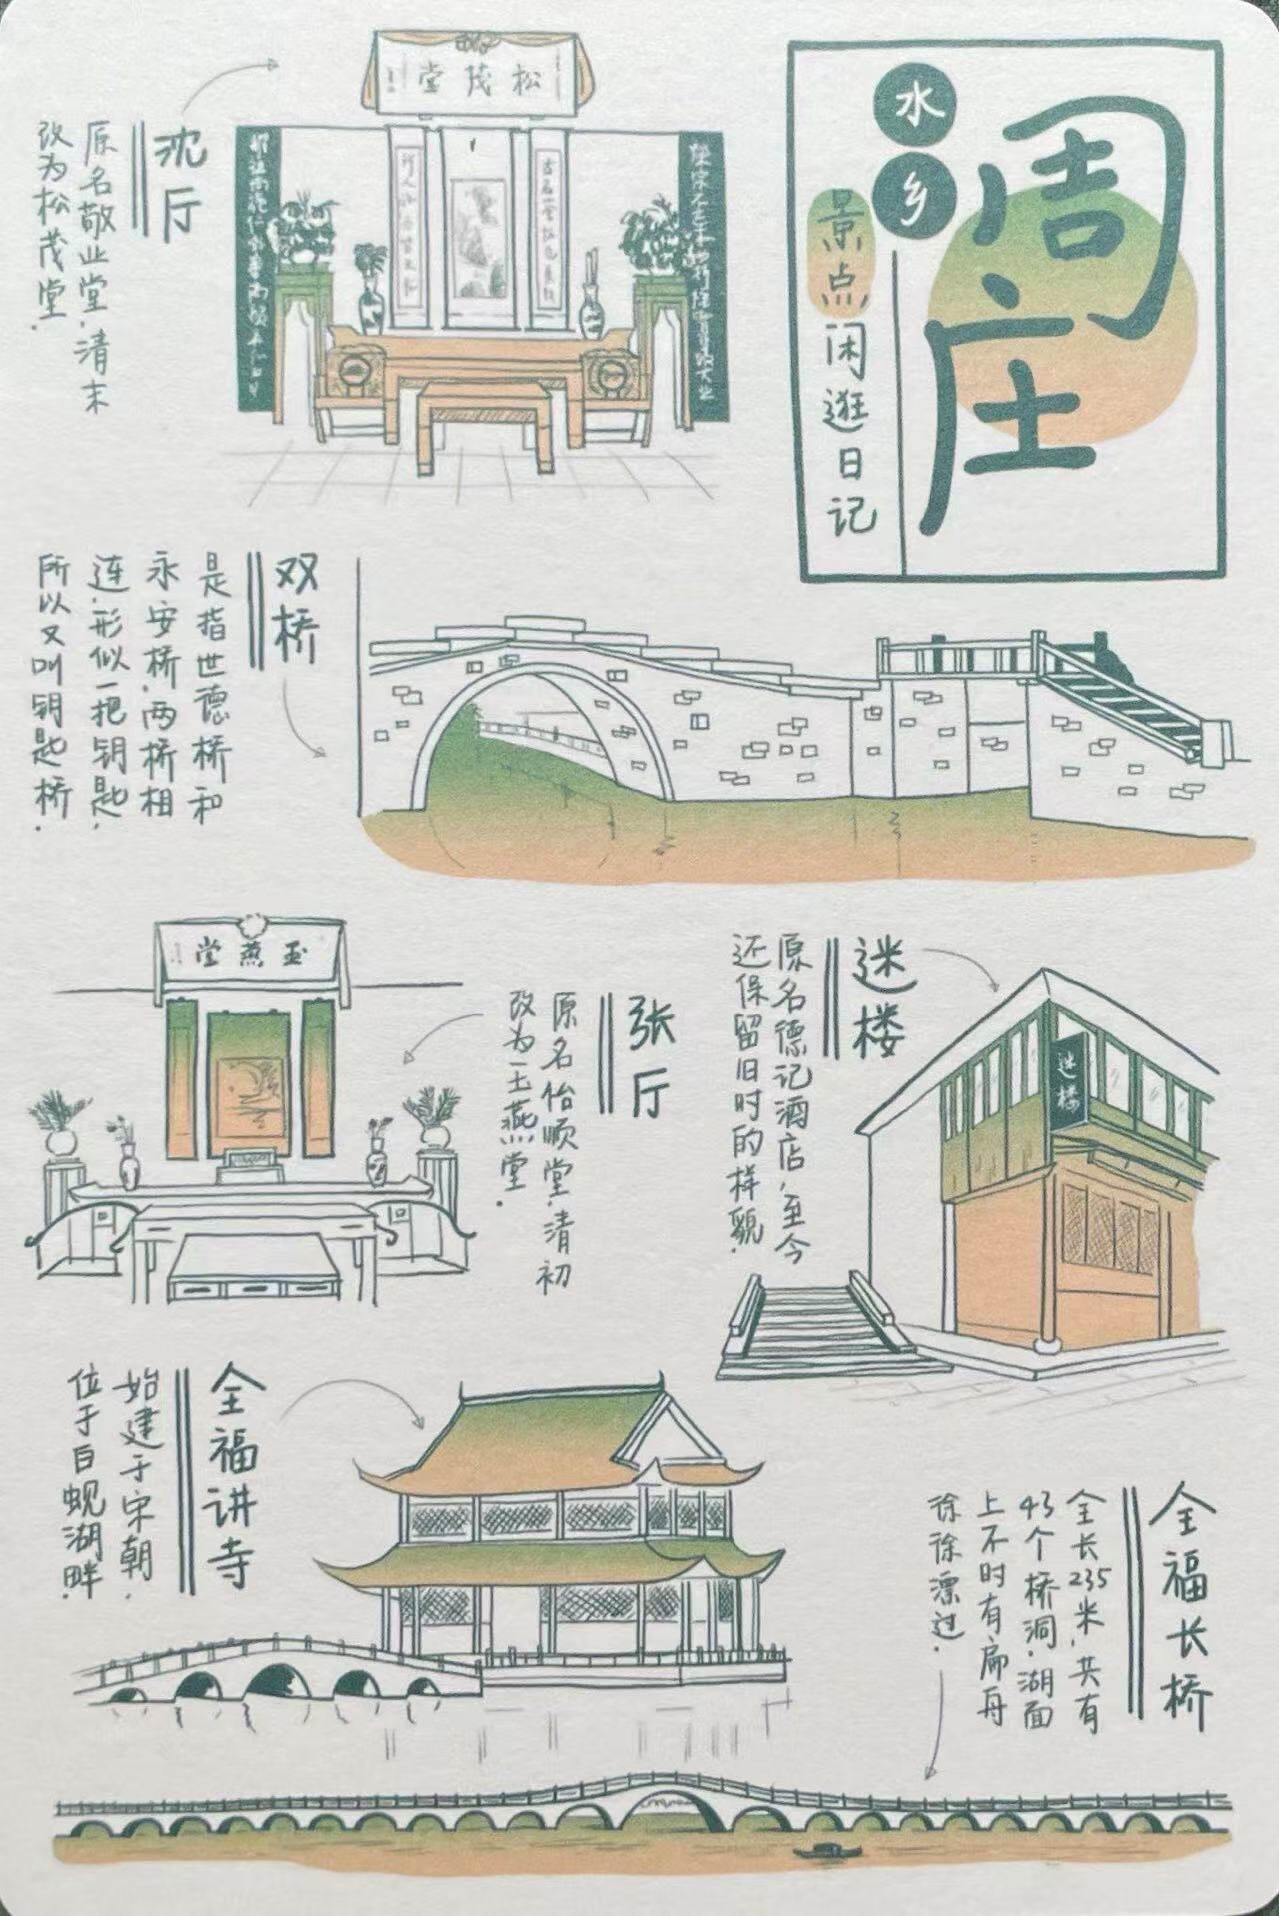 水乡
周庄
景点闲逛日记
沈厅
原名敬业堂,清末
改为松茂堂.
松茂堂
双桥
是指世德桥和
永安桥,两桥相
连.形似一把钥匙,
所以又叫钥匙桥.
玉燕堂
张厅
原名怡顺堂,清初
改为玉燕堂.
迷楼
原名德记酒店,至今
还保留旧时的样貌.
迷楼
全福讲寺
始建于宋朝,
位于白蚬湖畔.
全福长桥
全长235米,共有
43个桥洞.湖面
上不时有扁舟
徐徐漂过.